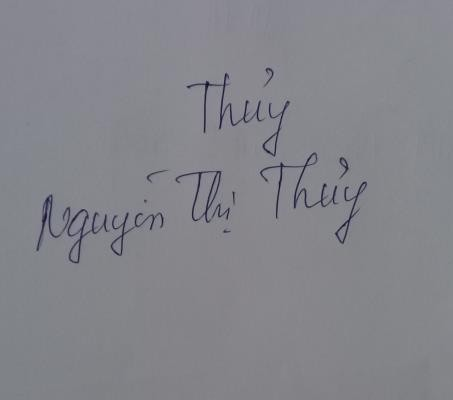 Thủy
Nguyễn Thị Thủy